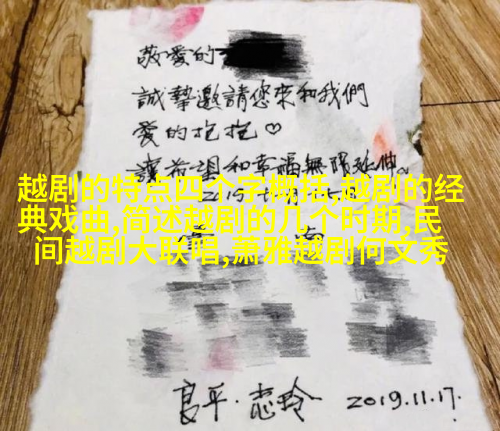 敬愛的
誠摯邀請您來和我們
愛的抱抱♡
讓希望和幸福無限延伸。
越剧的特点四个字概括,越剧的经
典戏曲,简述越剧的几个时期,民
间越剧大联唱,萧雅越剧何文秀
良平·志玲 2019.11.17.